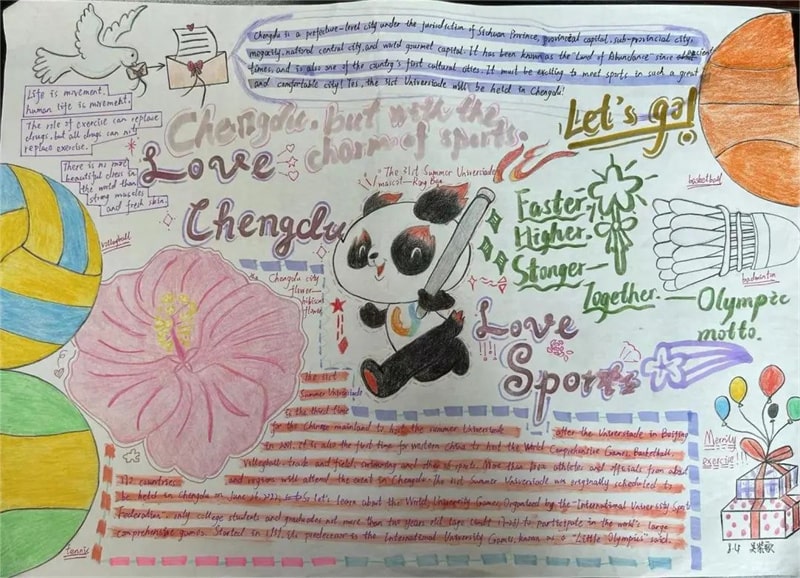 Chengdu is a prefecture-level city under the jurisdiction of Sichuan Province, provincial capital, sub-provincial city,
megacity, national central city, and world gourmet capital. It has been known as the "Land of Abundance" since ancient
times, and is also one of the country's first cultural cities. It must be exciting to meet sports in such a great
and comfortable city! Yes, the 31st Universiade will be held in Chengdu!
Life is movement,
human life is movement.
The role of exercise can replace
drugs, but all drugs can not
replace exercise.
There is no more
beautiful dress in
the world than
strong muscles
and fresh skin.
Chengdu, but with the
charm of sports.
Let's go!
Love
Chengdu
The 31st Summer Universiade
mascot—Rong Bao
Faster,
Higher,
Stonger—
Together.—Olympic
motto.
basketball
badminton
volleyball
the Chengdu city
flower—
hibiscus
flower
Love
Sports
The 31st
Summer Universiade
is the third time
for the Chinese mainland to host the summer Universiade after the Universiade in Beijing
in 2001. It is also the first time for western China to host the World Comprehensive Games. Basketball,
volleyball, track and field, swimming and other sports. More than athletes and officials from about
170 countries and regions will attend the event in Chengdu. The 31st Summer Universiade was originally scheduled to
be held in Chengdu on June let's learn about the World University Games, Organized by the International University Sport
Federation, only college students and graduates not more than two years old to participate in the world's large
comprehensive games. Started in its predecessor is the International University Games, known as a "Little Olympics" said.
Merrily
exercise!!!
tennis